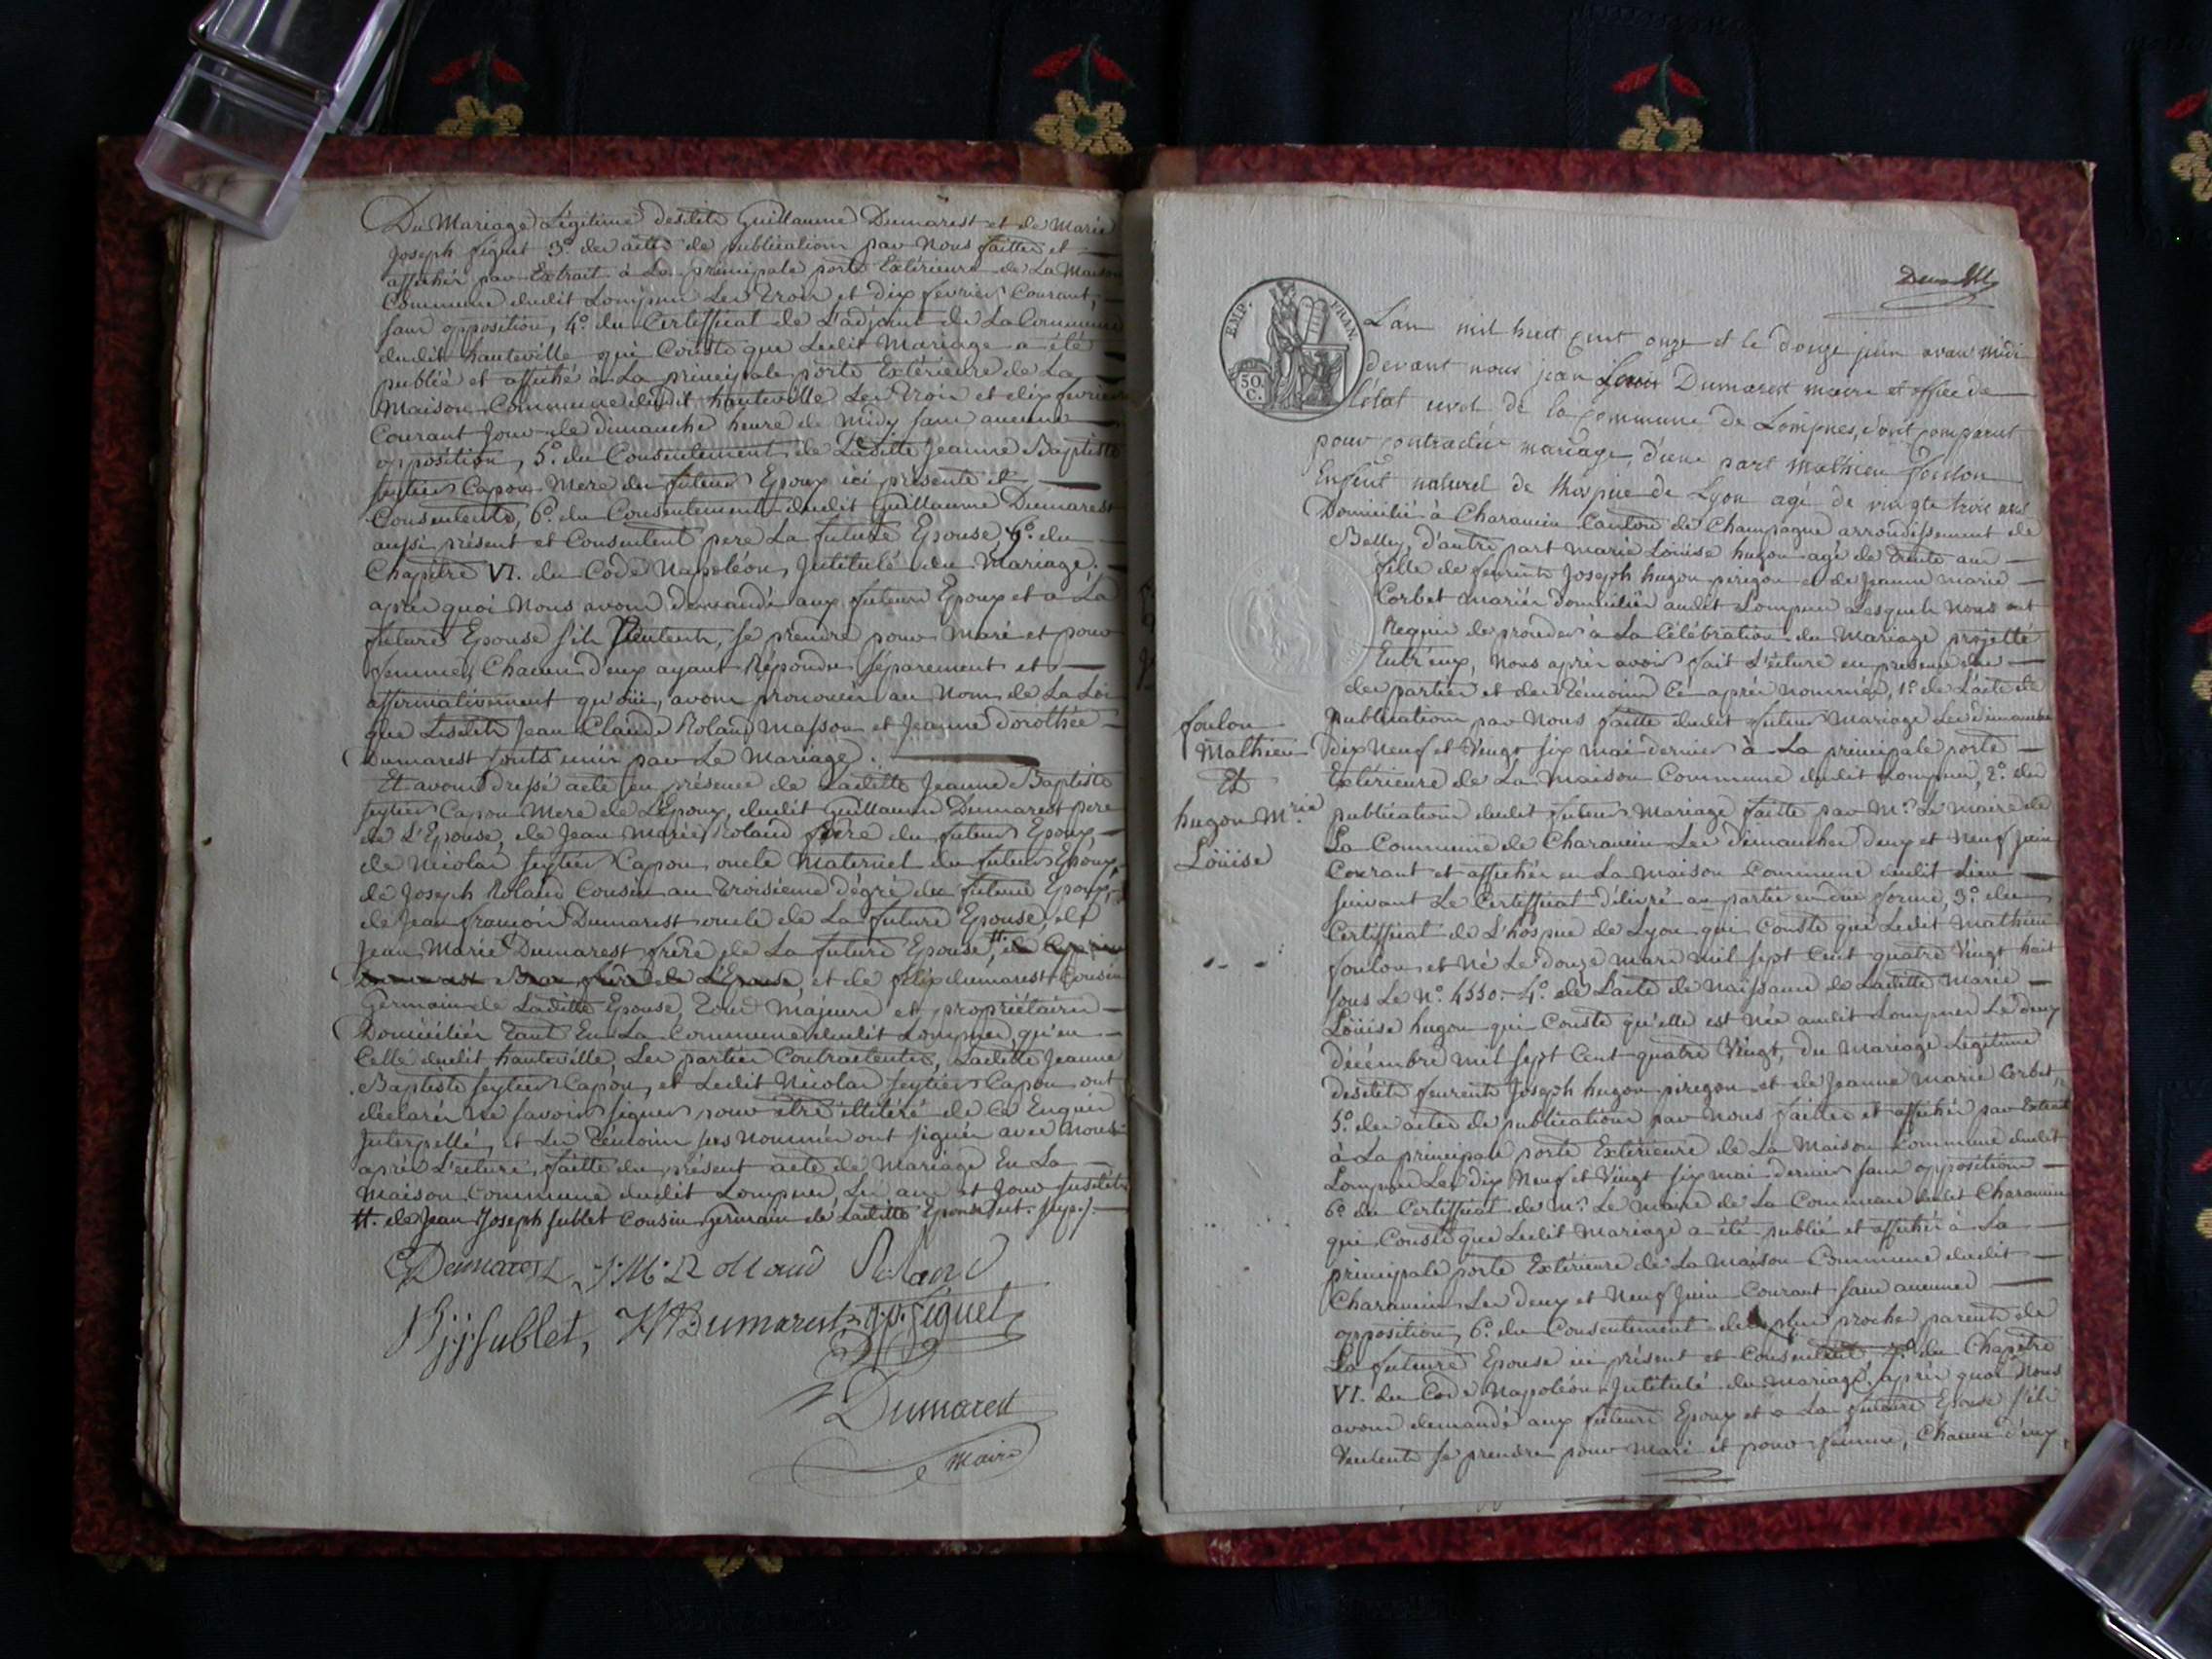 Du Mariage Légitime desdits Guillaume Dumarest et de Marie
Joseph figuet 3.° des actes de publications par Nous faittes et
affichés par Extrait à La principale porte Extérieure de La Maison
Commune dudit Lompnes Les Trois et dix fevrier Courant,
sans opposition, 4.° du Certifficat de L'adjoint de La Commune
dudit hauteville qui Conste que Ledit Mariage a été
publié et affiché à La principale porte Extérieure de La
Maison Commune dudit hauteville Les Trois et dix fevrier
Courant Jour de dimanche heure de Midy sans aucune
opposition, 5.° du Consentement de Laditte Jeanne Baptiste
seytier Capon Mere du futeur Epoux ici présente et
Consentente, 6.° du Consentement dudit Guillaume Dumarest
aussi présent et Consentent pere La future Epouse, 7.° du
Chapitre VI. du Code Napoléon, Jntitulé du Mariage.
après quoi Nous avons demandé aux futeurs Epoux et a La
future Epouse s'ils Veulents, se prendre pour Mari et pour
femme, Chacun d'eux ayant Répondu séparement et
affirmativement qu'oüi, avons prononcés au Nom de La Loi
que Lesdits Jean Claude Roland Masson et Jeanne dorothée
Dumarest sonts unis par Le Mariage.
Et avons dressé acte en présence de Laditte Jeanne Baptiste
seytier Capon Mere de L'Epoux, dudit Guillaume Dumarest pere
de L'Epouse, de Jean Marie Roland frere du futeur Epoux,
de Nicolas seytier Capon oncle Maternel du futeur Epoux
de Joseph Roland Cousin au Troisieme dégré du futeur Epoux,
de Jean françois Dumarest oncle de La future Epouse, de
Jean Marie Dumarest frère de La future Epouse, #
frère de L'Epouse, et de félix dumarest Cousin
Germain de Laditte Epouse, Tous Majeurs et propriétaires
Domiciliés Tant En La Commune dudit Lompnes, qu'en
Celle dudit hauteville, Les parties Contractentes, Laditte Jeanne
Baptiste seytier Capon, et Ledit Nicolas seytier Capon ont
déclarés ne savoir signer pour être illitéré de Ce Enquis
Jnterpellé, et Les Témoins sus Nommés ont signés avec Nous
après L'ecture, faitte du présent acte de Mariage En La
Maison Commune dudit Lompnes, Les an et Jour susdits
#. de Jean Joseph sublet Cousin Germain de Laditte Epouse ut. supr.
Dumarest J. M. Rolland Roland
B. j. j. sublet, Dumarest figuet
Dumarest
Maire
L'an mil huit cent onze et le douze juin avan midi
devant nous jean Louis Dumarest maire et officier de
l'état civil de la commune de Lompnes, sont comparut
pour contracter mariage, d'une part mathieu foulon
Enfent naturel de Lhospice de Lyon agé de vingte trois ans
Domicilié à Charancin Canton de Champagne arrondissement de
Belley, d'autre part marie Loüise hugon agé de Trente ans
fille de feurents Joseph hugon piregon et de Jeanne marie
Corbet mariés domiciliés audit Lompnes Lesquels Nous ont
Requis de proceder à La Célébration du Mariage projetté
Entr'eux, Nous après avoir fait L'ecture en présence
des parties et des Témoins ci après nommés, 1.° de L'acte de
foulon
Mathieu
Et
hugon M.rie
Loüise
publications par Nous faitte dudit futeur Mariage Les dimanches
dix Neuf et Vingt six mai dernier à La principale porte
Extérieure de La Maison Commune dudit Lompnes, 2.° du
publication dudit futeur Mariage faitte par M.r Le Maire de
La Commune de Charancin Les dimanches deux et Neuf Juin
Courant et affichés en La Maison Commune dudit Lieu
suivant Le Certifficat délivré au partie en due forme, 3.° du
Certifficat de L'hospice de Lyon qui Conste que Ledit Mathieu
foulon est Né Le douze mars mil sept Cent quatre Vingt huit
sous Le N.° 4550. 4.° de L'acte de Naissance de Laditte Marie
Loüise hugon qui Conste qu'elle est Née audit Lompnes Le deux
décémbre mil sept Cent quatre Vingt, du Mariage Légitime
desdits feurents Joseph hugon piregon et de Jeanne Marie Corbet,
5.° des actes de publications par Nous faittes et affichés par Extrait
à La principale porte Extérieure de La Maison Commune dudit
Lompnes Les dix Neuf et Vingt six mai dernier sans opposition
6.° du Certifficat de M.r Le Maire de La Commune dudit Charancin
qui Conste que Ledit Mariage a été publié et affiché à La
principale porte Extérieure de La Maison Commune dudit
Charancin Les deux et Neuf Juin Courant sans aucunes
opposition, 6.° du Consentement des plus proches parents de
La future Epouse ici présent et Consentent 7.° du Chapitre
VI. du Code Napoléon Jntitulé du Mariage, après quoi Nous
avons demandé aux futeurs Epoux et a La future Epouse s'ils
Veulents se prendre pour Mari et pour femme, Chacun d'eux,
EMP. FRAN.
50 C.